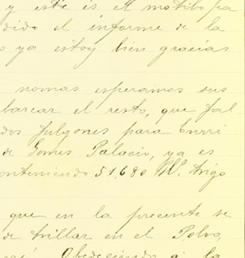 y este es el motibo pa
dido el informe de la
o ya estoy bien gracias
nomas esperamos sus
barcar el resto, que fal
dos fulgones para
de Gomes Palacio, ya es
onteniendo 51,680 Kl. trigo
que en la presente se
de trillar en el Polvo,
Obedeciendo a la